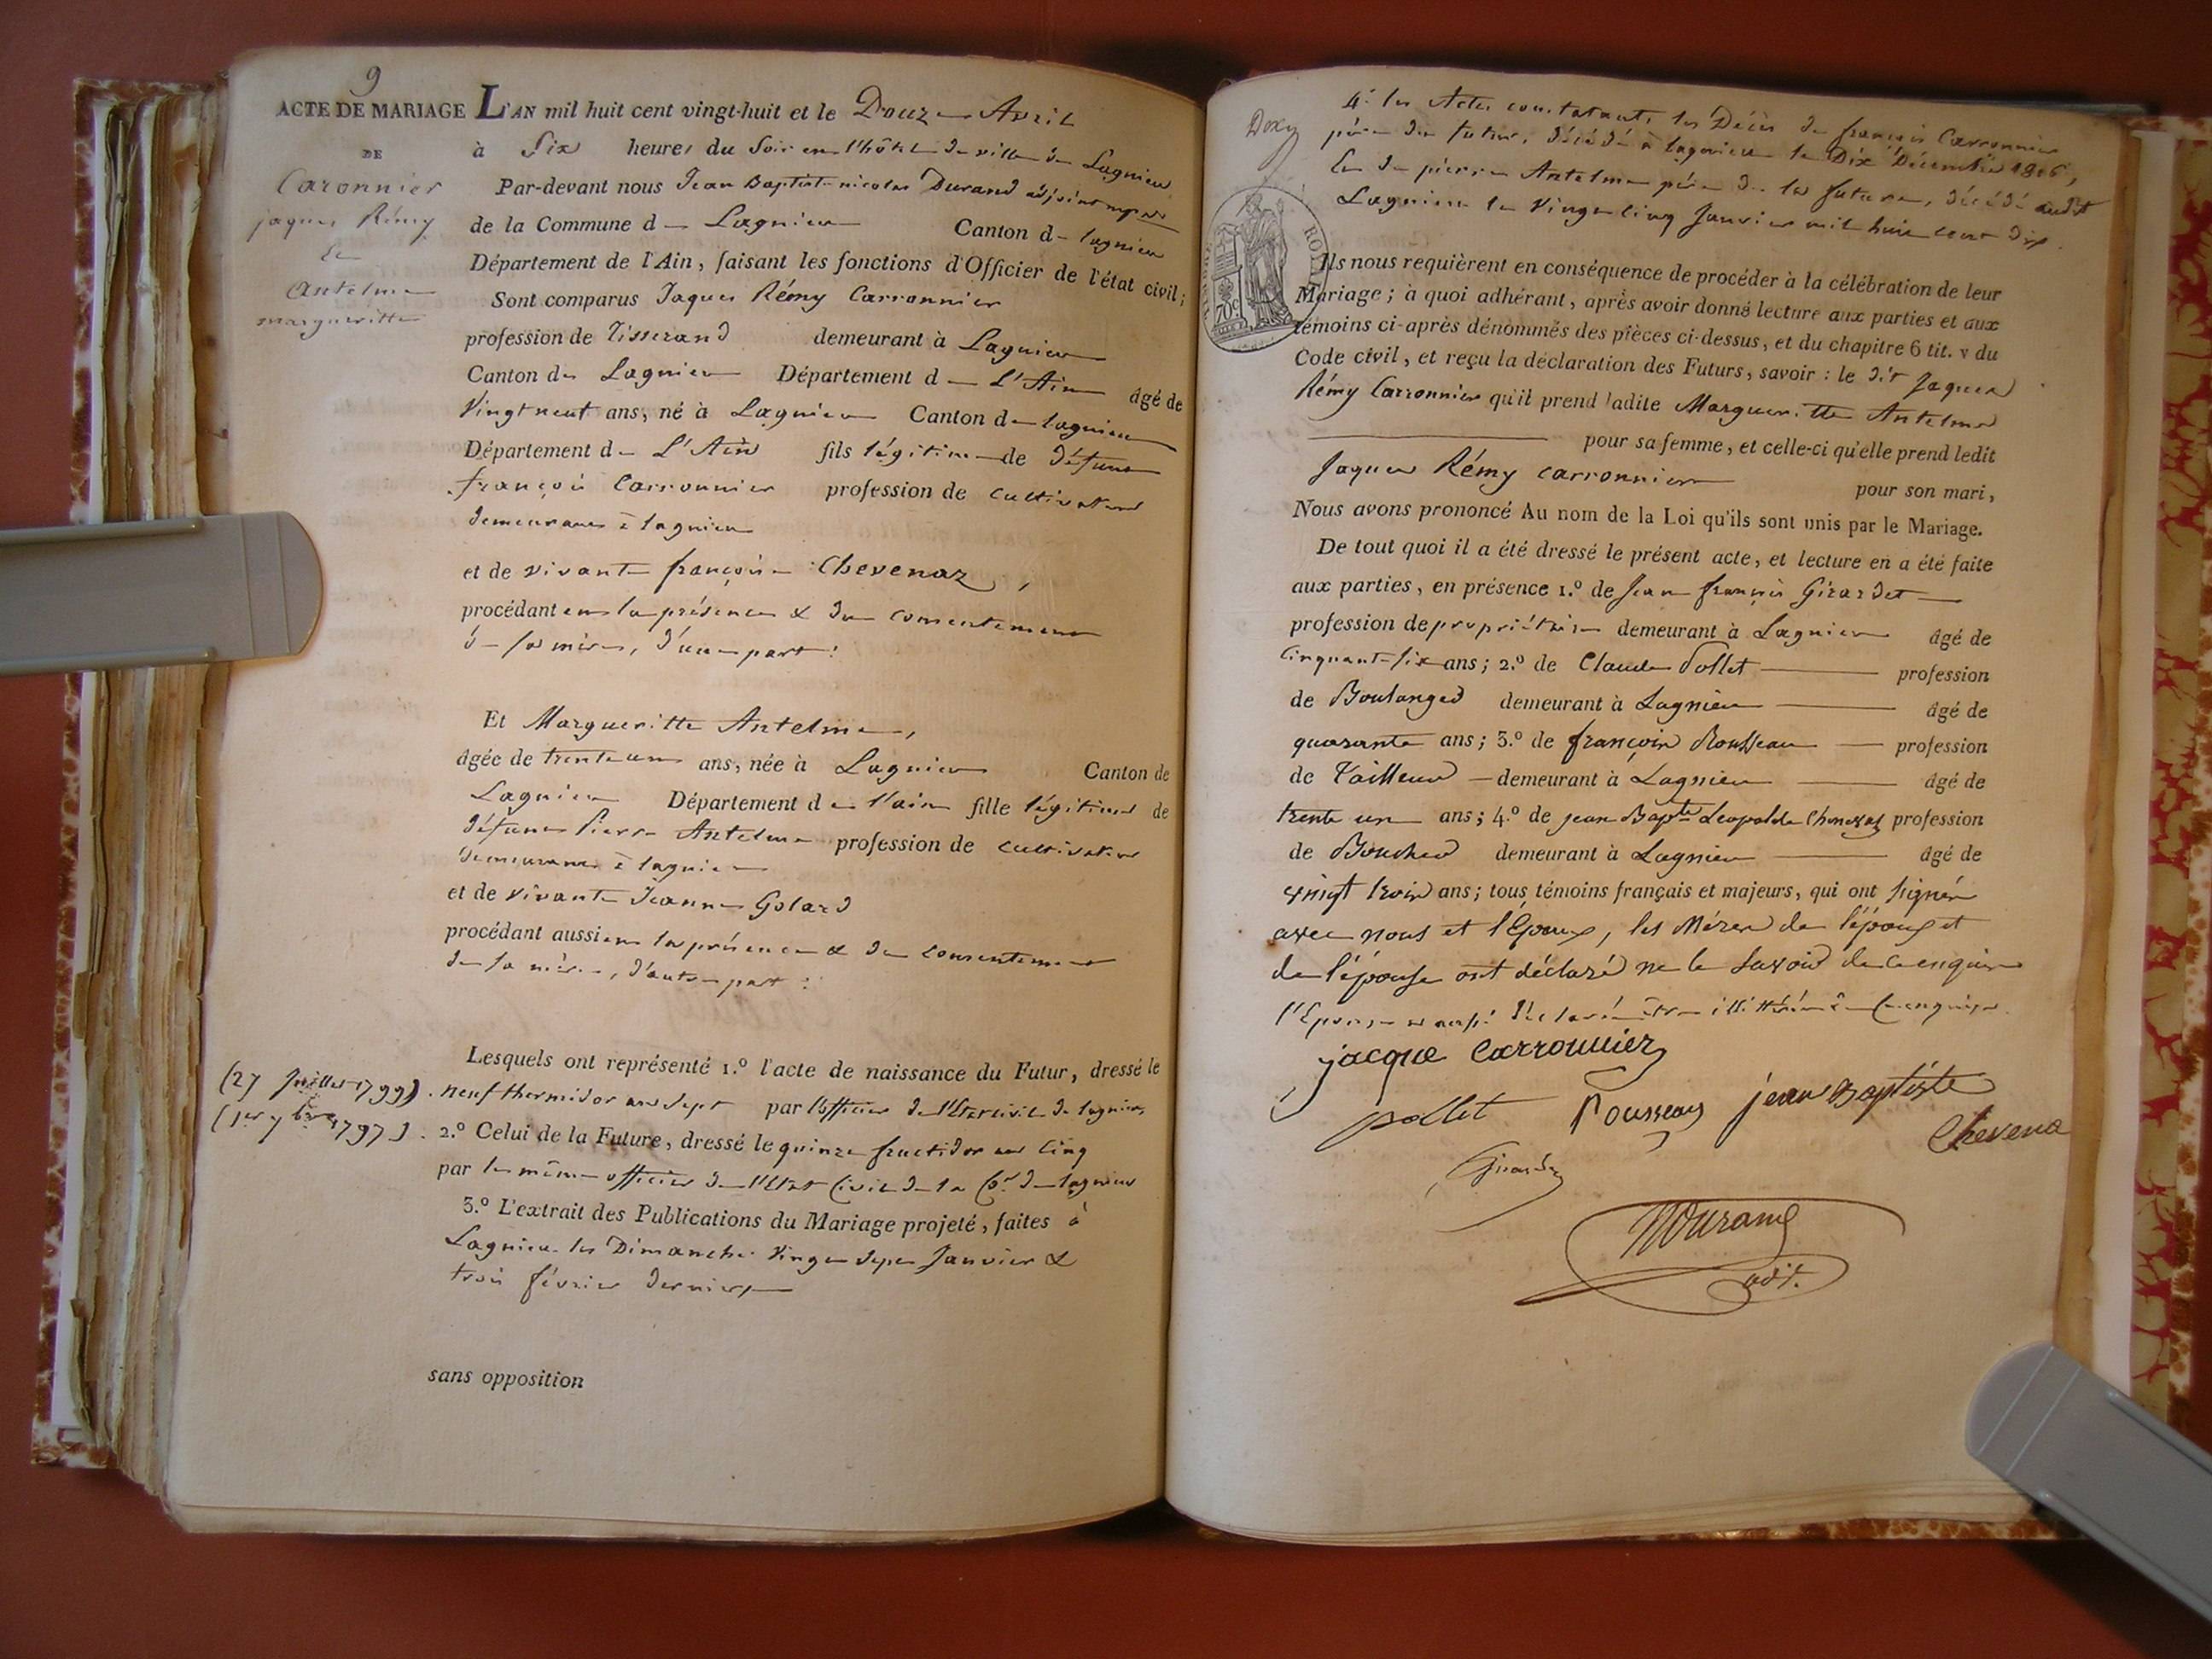 9
ACTE DE MARIAGE
DE
Caronnier
jaques Rémy
Et
Antelme
margueritte
L'AN mil huit cent vingt-huit et le Douze Avril
à Six heures du Soir en l'hôtel de ville de Lagnieu
Par-devant nous Jean Baptiste nicolas Durand adjoint
de la Commune de Lagnieu Canton de lagnieu
Département de l'Ain, faisant les fonctions d'Officier de l'état civil;
Sont comparus Jaques Rémy Carronnier
profession de Tisserand demeurant à Lagnieu
Canton de Lagnieu Département de L'Ain âgé de
Vingt neuf ans, né à Lagnieu Canton de lagnieu
Département de L'Ain fils légitime de défunt
françois Carronnier profession de cultivateur
demeurant à lagnieu
et de vivante françoise Chevenaz,
procédant en la présence & du consentement
de sa mère, d'une part:
Et Margueritte Antelme,
âgée de trente un ans, née à Lagnieu Canton de
Lagnieu Département de l'ain fille légitime de
défunt Pierre Antelme profession de cultivateur
demeurant à lagnieu
et de vivante Jeanne Golard
procédant aussi en la présence & du consentement
de sa mère, d'autre part:
Lesquels ont représenté 1.º l'acte de naissance du Futur, dressé le
(27 Juillet 1799). neuf thermidor an sept par l'officier de l'Etat civil de lagnieu
(1er 7bre 1797). 2.º Celui de la Future, dressé le quinze fructidor an cinq
par le même officier de l'Etat Civil de la Cne de lagnieu
3.º L'extrait des Publications du Mariage projeté, faites à
Lagnieu les Dimanche Vingt sept Janvier &
trois février dernier
sans opposition
4º les Actes constatant les Décès de françois Carronnier
père du futur, décédé à lagnieu le Dix Décembre 1806,
Et de pierre Antelme père de la future, décédé audit
Lagnieu le Vingt cinq Janvier mil huit cent dix.
70c
Ils nous requièrent en conséquence de procéder à la célébration de leur
Mariage; à quoi adhérant, après avoir donné lecture aux parties et aux
témoins ci-après dénommés des pièces ci-dessus, et du chapitre 6 tit. v du
Code civil, et reçu la déclaration des Futurs, savoir: le dit Jaques
Rémy Carronnier qu'il prend ladite Margueritte Antelme
pour sa femme, et celle-ci qu'elle prend ledit
Jaques Rémy carronnier pour son mari,
Nous avons prononcé Au nom de la Loi qu'ils sont unis par le Mariage.
De tout quoi il a été dressé le présent acte, et lecture en a été faite
aux parties, en présence 1.º de Jean françois Girardet
profession de propriétaire demeurant à Lagnieu âgé de
Cinquante six ans; 2.º de Claude Pollet profession
de Boulanger demeurant à Lagnieu âgé de
quarante ans; 3.º de françois Rousseau profession
de Tailleur demeurant à Lagnieu âgé de
trente un ans; 4.º de jean Bapte Leopolde Chenevaz profession
de Boucher demeurant à Lagnieu âgé de
vingt trois ans; tous témoins français et majeurs, qui ont signés
avec nous et l'Epoux, les Mères de l'époux et
de l'épouse ont déclaré ne le savoir de ce enquis
l'Epouse a aussi déclaré être illitérée de ce enquise.
jacque Carronnier
pollet Rousseau jean Baptiste
Chevena
Girardet
NDurand
adjt.